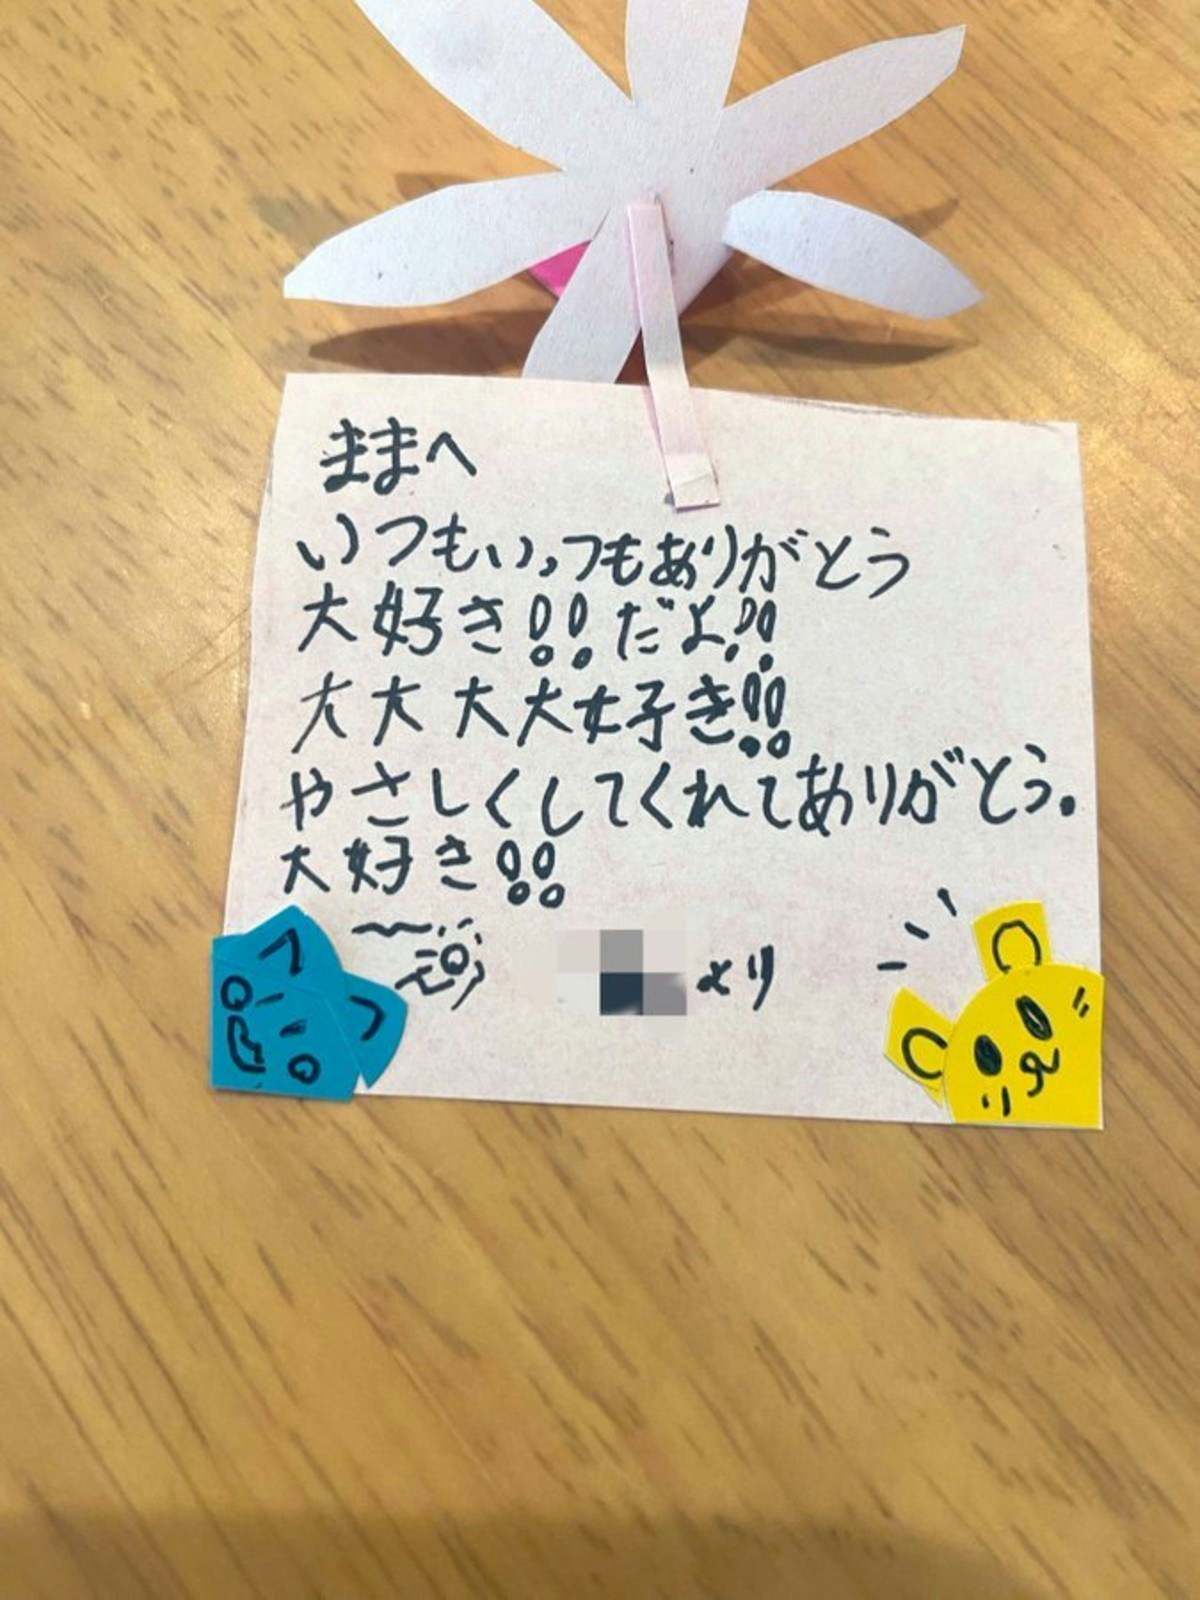 ままへ
いつもいっつもありがとう
大好き!!だよ!!
大大大大好き!!
やさしくしてくれてありがとう。
大好き!!
より